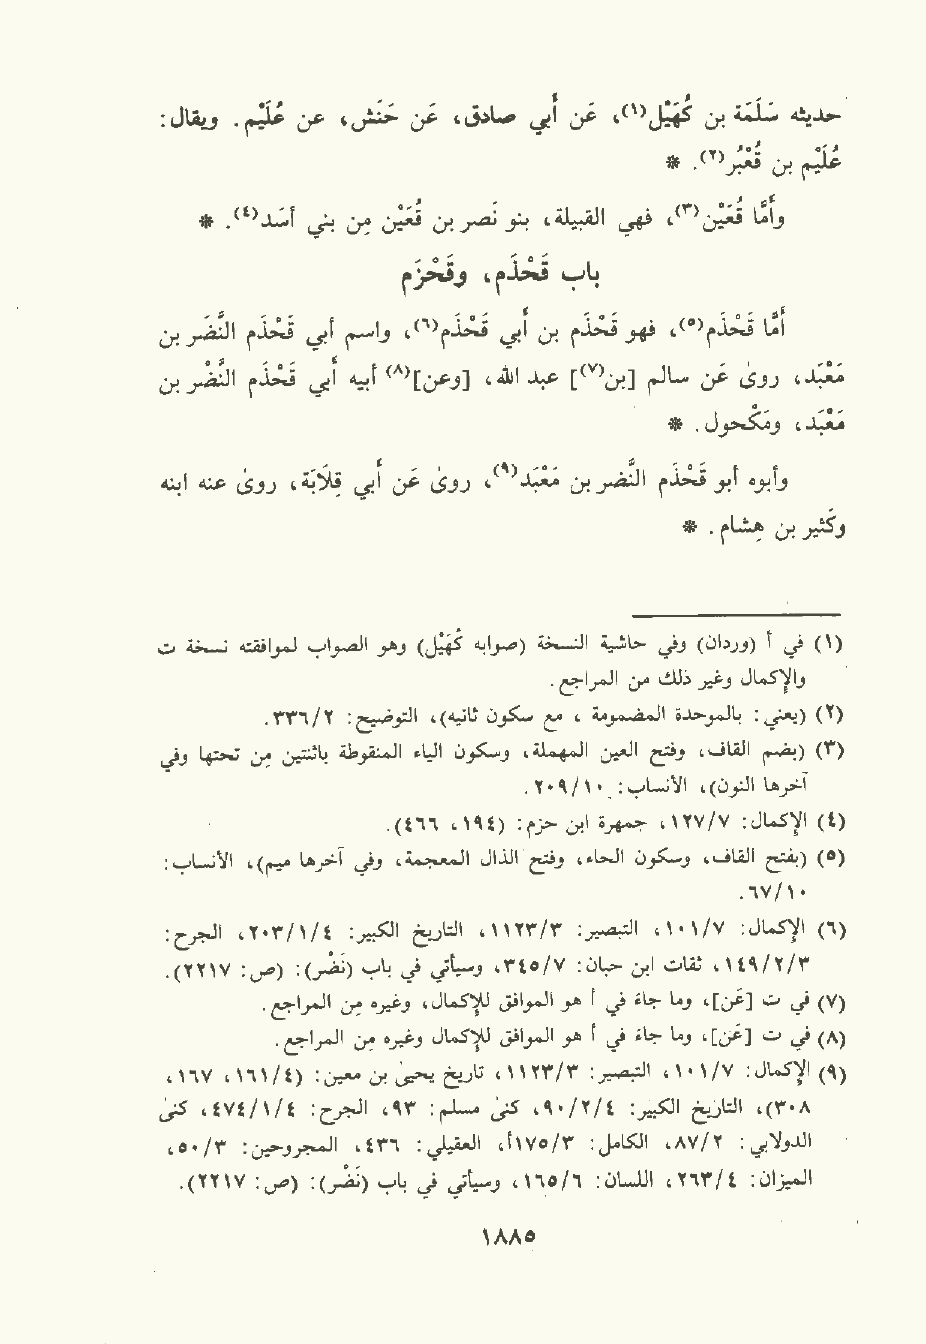 حديثه سَلَمَة بن كُهَيْل(١)، عَن أَبي صادق، عَن حَنَش، عن عُلَيْم. ويقال:
عُلَيْم بن قُعْبُر(٢). *
وأَمَّا قُعَيْن(٣)، فهي القبيلة، بنو نَصر بن قُعَيْن مِن بني أسَد(٤). *
باب قَحْذَم، وقَحْزَم
أَمَّا قَحْذَم(٥)، فهو قَحْذَم بن أَبي قَحْذَم(٦)، واسم أبي قَحْذَم النَّضْر بن
مَعْبَد، روىٰ عَن سالم [بن(٧)] عبد الله، [وعن](٨) أبيه أَبي قَحْذَم النَّضْر بن
مَعْبَد، ومَكْحول. *
وأبوه أبو قَحْذَم النَّضر بن مَعْبَد(٩)، روىٰ عَن أَبي قِلَابَة، روىٰ عنه ابنه
وكَثير بن هِشام. *
(١) في أ (وردان) وفي حاشية النسخة (صوابه كُهَيْل) وهو الصواب لموافقته نسخة ت
والإكمال وغير ذلك من المراجع.
(٢) (يعني: بالموحدة المضمومة ، مع سكون ثانيه)، التوضيح: ٣٣٦/٢.
(٣) (بضم القاف، وفتح العين المهملة، وسكون الياء المنقوطة باثنتين مِن تحتها وفي
آخرها النون)، الأنساب: ٢٠٩/١٠.
(٤) الإكمال: ١٢٧/٧، جمهرة ابن حزم: (١٩٤، ٤٦٦).
(٥) (بفتح القاف، وسكون الحاء، وفتح الذال المعجمة، وفي آخرها ميم)، الأنساب:
٦٧/١٠.
(٦) الإكمال: ١٠١/٧، التبصير: ١١٢٣/٣، التاريخ الكبير: ٢٠٣/١/٤، الجرح:
١٤٩/٢/٣، ثقات ابن حبان: ٣٤٥/٧، وسيأتي في باب (نَضْر): (ص: ٢٢١٧).
(٧) في ت [عَن]، وما جاء في أ هو الموافق للإكمال، وغيره مِن المراجع.
(٨) في ت [عَن]، وما جاء في أ هو الموافق للإكمال وغيره مِن المراجع.
(٩) الإكمال: ١٠١/٧، التبصير: ١١٢٣/٣، تاريخ يحيىٰ بن معين: (١٦١/٤، ١٦٧،
٣٠٨)، التاريخ الكبير: ٩٠/٢/٤، كنىٰ مسلم: ٩٣، الجرح: ٤٧٤/١/٤، كنىٰ
الدولابي: ٨٧/٢، الكامل: ١٧٥/٣أ، العقيلي: ٤٣٦، المجروحين: ٥٠/٣،
الميزان: ٢٦٣/٤، اللسان: ١٦٥/٦، وسيأتي في باب (نَضْر): (ص: ٢٢١٧).
١٨٨٥